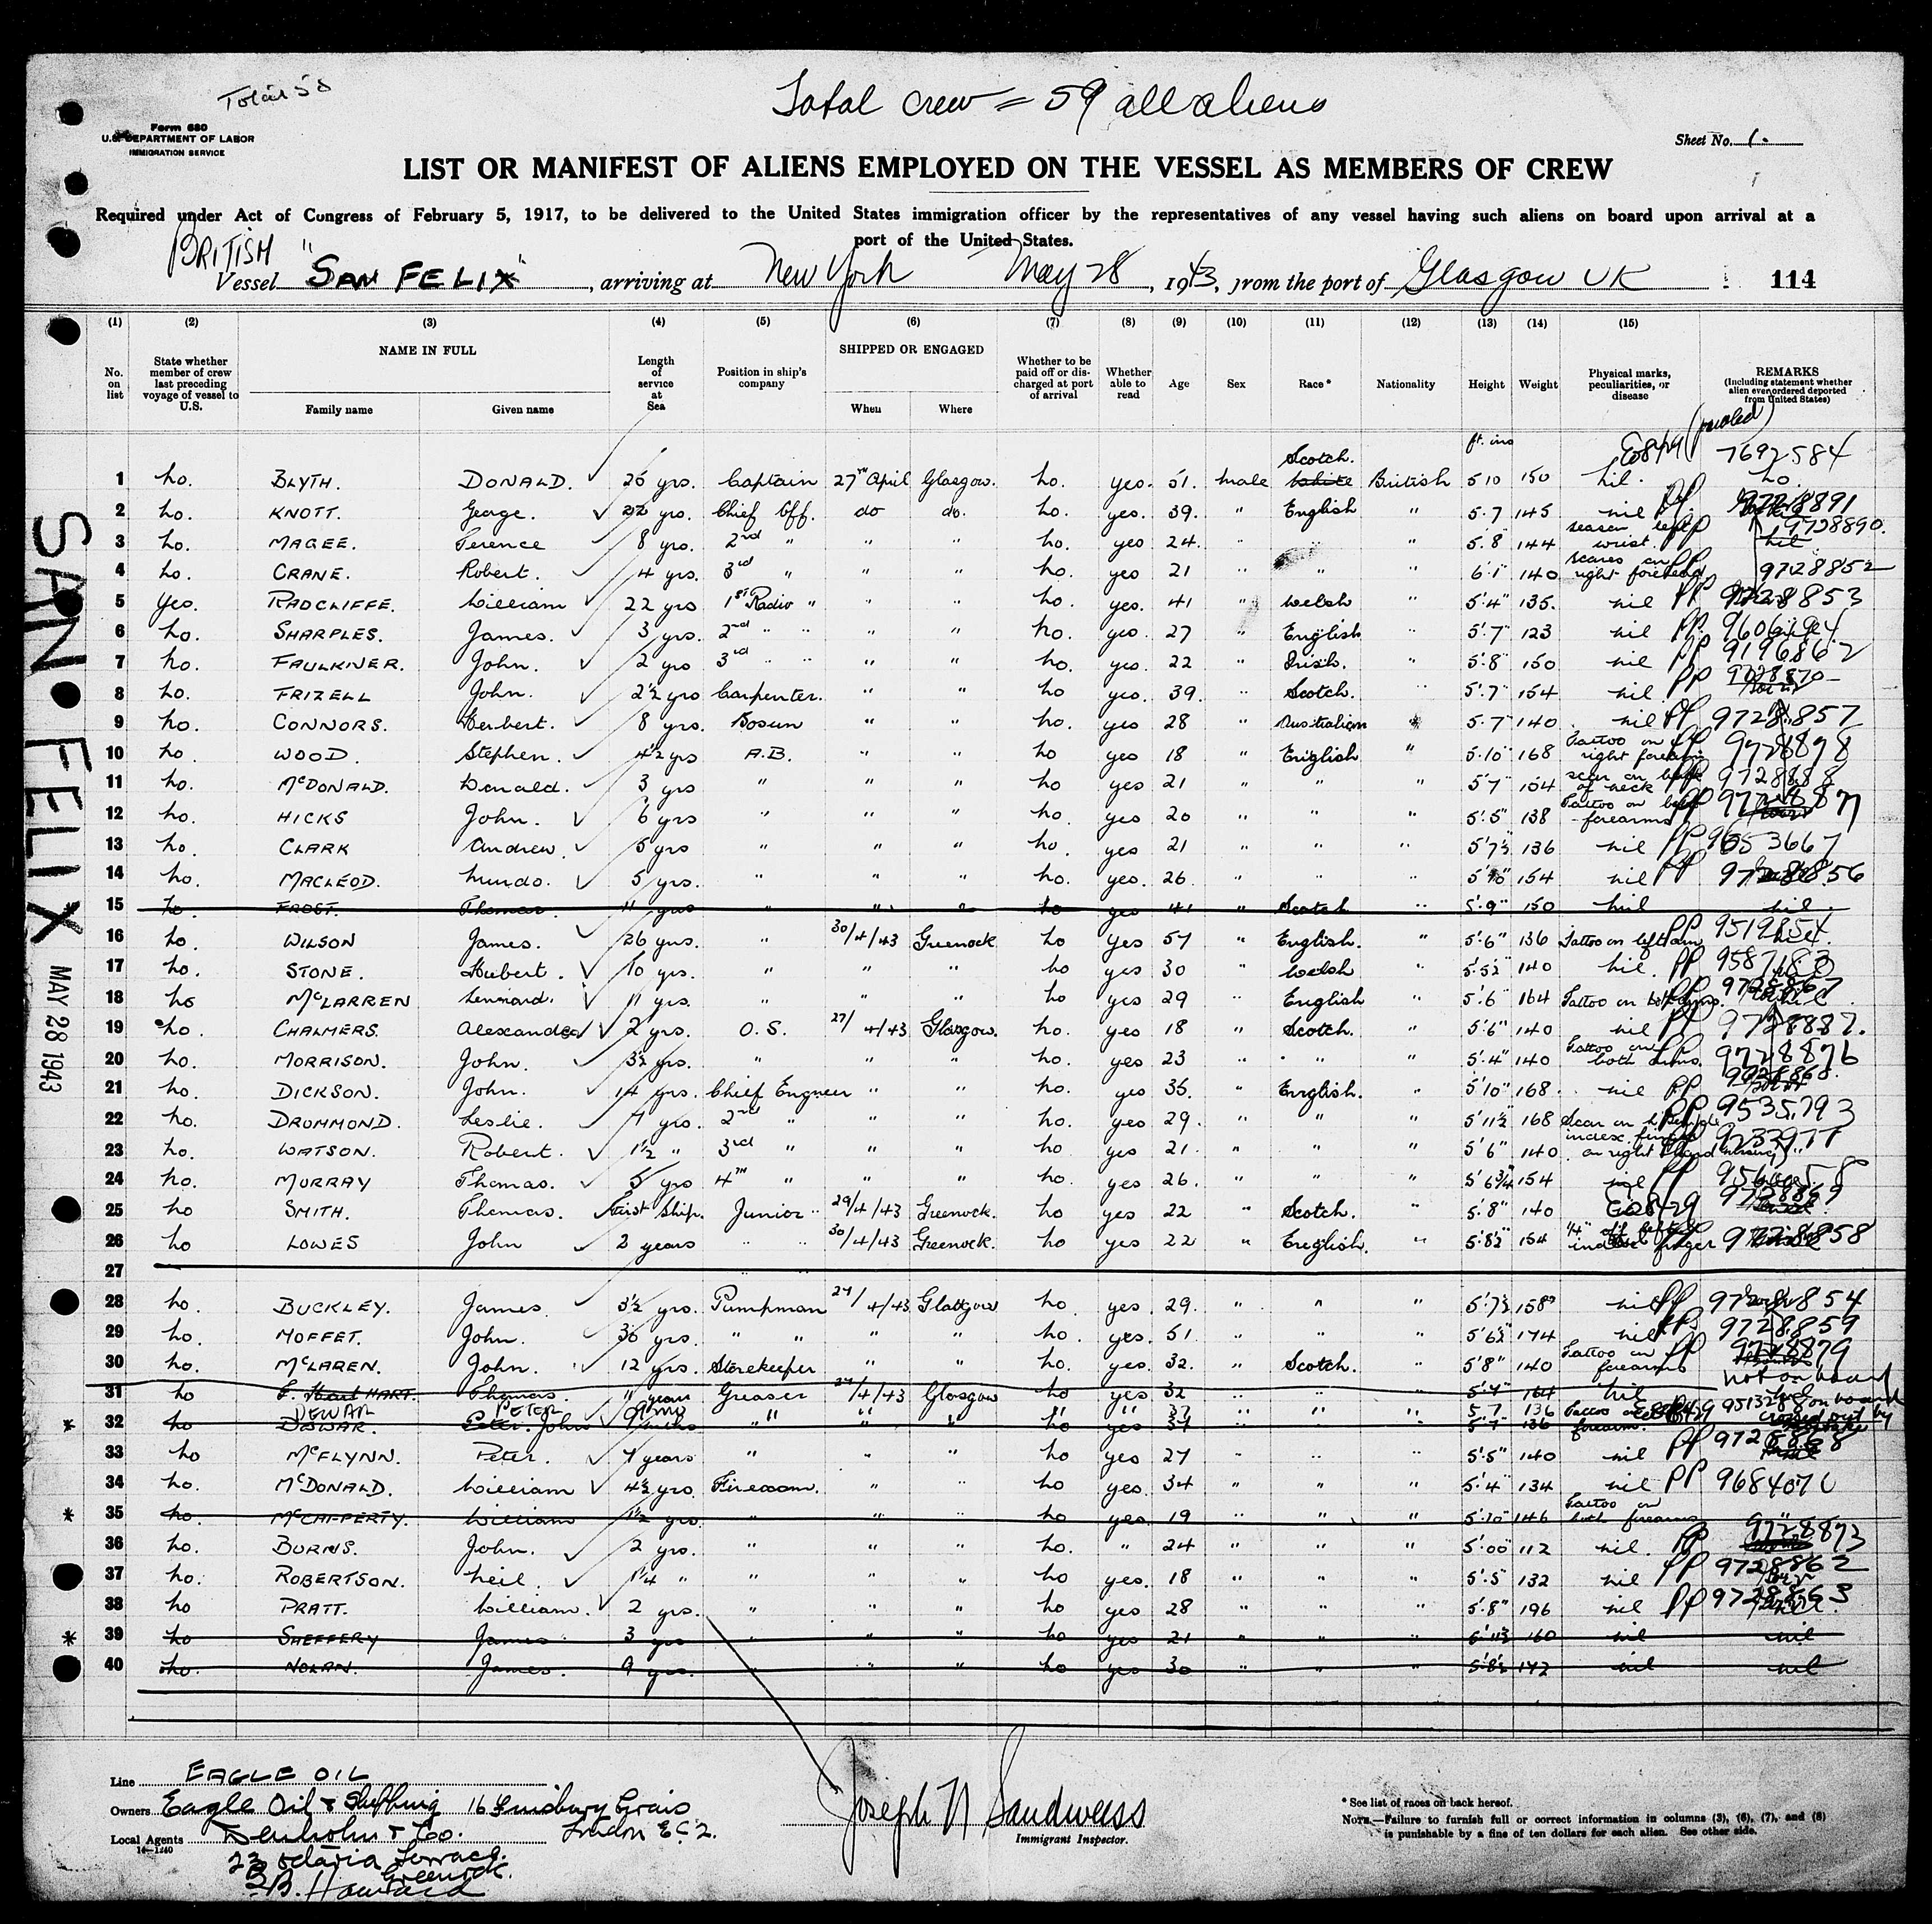 Total 58
Total crew = 59 all aliens
Form 680
U.S. DEPARTMENT OF LABOR
IMMIGRATION SERVICE
Sheet No. 1.
LIST OR MANIFEST OF ALIENS EMPLOYED ON THE VESSEL AS MEMBERS OF CREW
Required under Act of Congress of February 5, 1917, to be delivered to the United States immigration officer by the representatives of any vessel having such aliens on board upon arrival at a
port of the United States.
BRITISH
Vessel "SAN FELIX", arriving at New York May 28, 1943, from the port of Glasgow UK 114
(1) (2) (3) (4) (5) (6) (7) (8) (9) (10) (11) (12) (13) (14) (15)
No. on list State whether member of crew last preceding voyage of vessel to U.S. NAME IN FULL Family name Given name Length of service at Sea Position in ship's company SHIPPED OR ENGAGED When Where Whether to be paid off or discharged at port of arrival Whether able to read Age Sex Race* Nationality Height Weight Physical marks, peculiarities, or disease REMARKS (Including statement whether alien ever ordered deported from United States)
ft. ins
Scotch. 7692584
1 no. BLYTH. DONALD. 25 yrs. Captain 27th April Glasgow. no. yes. 51. male White British 5 10 150 nil. no.
2 no. KNOTT. George. 22 yrs. Chief Off. do do. no. yes. 39. " English " 5.7 145 nil PP. 9728891
3 no. MAGEE. Terence 8 yrs. 2nd " " " no. yes 24. " " " 5.8 144 left wrist. PP 9728890. nil
4 no. CRANE. Robert. 4 yrs. 3rd " " " no. yes 21 " " " 6'1" 140 scares on right forehead PP 9728852
5 yes. RADCLIFFE. William 22 yrs 1st Radio " " " no. yes. 41 " Welsh " 5'4" 135. nil PP 9728853
6 no. SHARPLES. James. 3 yrs. 2nd " " " " no. yes. 27 " English " 5'.7" 123 nil PP.
7 no. FAULKNER. John. 2 yrs 3rd " " " " no. yes. 22 " Irish. " 5'.8" 150 nil PP 9196862
8 no. FRIZELL John. 2½ yrs Carpenter. " " no yes. 39. " Scotch. " 5'.7" 154 nil PP 9728870
9 no. CONNORS. Herbert. 8 yrs. Bosun " " no. yes 28 " Australian " 5.7" 140 nil PP 9728857
10 no WOOD. Stephen. 4½ yrs A.B. " " no yes 18 " English " 5.10" 168 Tattoo on right forearm PP 9728898
11 no. McDONALD. Donald. 3 yrs " " " no yes 21 " " " 5'7" 154 scar on back of neck PP 9728888
12 no. HICKS John. 6 yrs " " " no. yes 20 " " " 5'.5" 138 Tattoo on both forearms PP
13 no. CLARK Andrew. 5 yrs " " " no. yes 21 " " " 5'7½ 136 nil PP 9653667
14 no. MACLEOD. Murdo. 5 yrs. " " " no. yes. 26. " " " 5'10" 154 nil PP 9728856
15 no. FROST. Thomas. 11 yrs " " " no yes 41 " Scotch " 5'.9" 150 nil nil.
16 no. WILSON James. 26 yrs. " 30/4/43 Greenock no yes 57 " English. " 5'6" 136 Tattoo on left arm PP 9519854
17 no. STONE. Hubert. 10 yrs. " " " no yes 30 " Welsh " 5'.5½" 140 nil. PP 9587183
18 no McLARREN Lennard. 11 yrs. " " " no yes 29 " English " 5'.6" 164 Tattoo on both arms. PP 9728867
19 no. CHALMERS. Alexander 2 yrs. O.S. 27/4/43 Glasgow. no. yes 18 " Scotch. " 5'6" 140 nil PP 9728887.
20 no. MORRISON. John. 3½ yrs. " " " no. yes 23 " " " 5'.4" 140 Tattoo on both arms. PP 9728876
21 no. DICKSON. John. 14 yrs. Chief Engneer " " no. yes 35. " English. " 5'10" 168. nil PP 9728868.
22 no. DRUMMOND. Leslie. 7 yrs. 2nd " " " no. yes 29. " " " 5'11½ 168 Scar on PP 9535793
23 no. WATSON. Robert. 1½ " 3rd " " " no yes 21. " " " 5'6" 140 index finger on right hand missing PP 9233977
24 no. MURRAY Thomas. 5 yrs 4th " " " no. yes 26. " " " 5'6¾ 154 nil PP
25 no SMITH. Thomas. First Ship. Junior " 29/4/43 Greenock. no yes 22 " Scotch. " 5'.8" 140 9728869
26 no LOWES John 2 years " " 30/4/43 Greenock. no yes 22 " English. " 5'.8½" 154 ¼" off left index finger 9728858
27
28 no. BUCKLEY. James. 3½ yrs. Pumpman 27/4/43 Glasgow no. yes. 29. " " " 5'.7½ 158 nil PP 9728854
29 no. MOFFET. John. 30 yrs. " " " " no. yes. 51 " " " 5'6½" 174 nil PP. 9728859
30 no. McLAREN. John. 12 yrs. Storekeeper " " no. yes. 32. " Scotch. " 5'8" 140 Tattoo on forearms PP 9728879
31 no HART. Thomas. 11 years Greaser 27/4/43 Glasgow no yes 32 " " " 5'.7" 164 nil not on board
DEWAR PETER 9 mo " " " " " 37 " " " 5.7 136 Tattoo 9513288 on board
32 no DEWAR. Peter. John 9 mths " " " no yes 37 " " " 5'7" 136 forearm. crossed out by mistake
33 no McFLYNN. Peter. 7 years " " " no yes 27 " " " 5'.5" 140 nil PP
34 no. McDONALD. William 4½ yrs. Fireman. " " no yes. 34 " " " 5'.4" 134 nil PP 9684070
35 no. McCAFFERTY. William 1½ yrs. " " " no yes. 19 " " " 5'.10" 146 Tattoo on both forearms
36 no. BURNS. John. 2 yrs. " " " no. " 24 " " " 5'.00" 112 nil. PP 9728873
37 no. ROBERTSON. Neil. 1¼ " " " " no yes. 18 " " " 5'.5" 132 nil PP 9728862
38 no PRATT. William. 2 yrs. " " " no yes 28 " " " 5'.8" 196 nil PP 9728863
39 no SHEFFERY James. 3 yrs " " " no yes 21 " " " 5'11½ 160 nil nil
40 no. NOLAN. James. 9 yrs. " " " no yes 30 " " " 5'.8½ 142 nil nil
SAN FELIX
MAY 28 1943
Line EAGLE OIL
Owners Eagle Oil & Shipping 16 Finsbury Circus
London E.C.2.
Local Agents Denholm & Co.
16—1240
Terrace.
Greenock.
Joseph N Sandweiss
Immigrant Inspector.
* See list of races on back hereof.
NOTE.—Failure to furnish full or correct information in columns (3), (6), (7), and (8)
is punishable by a fine of ten dollars for each alien. See other side.